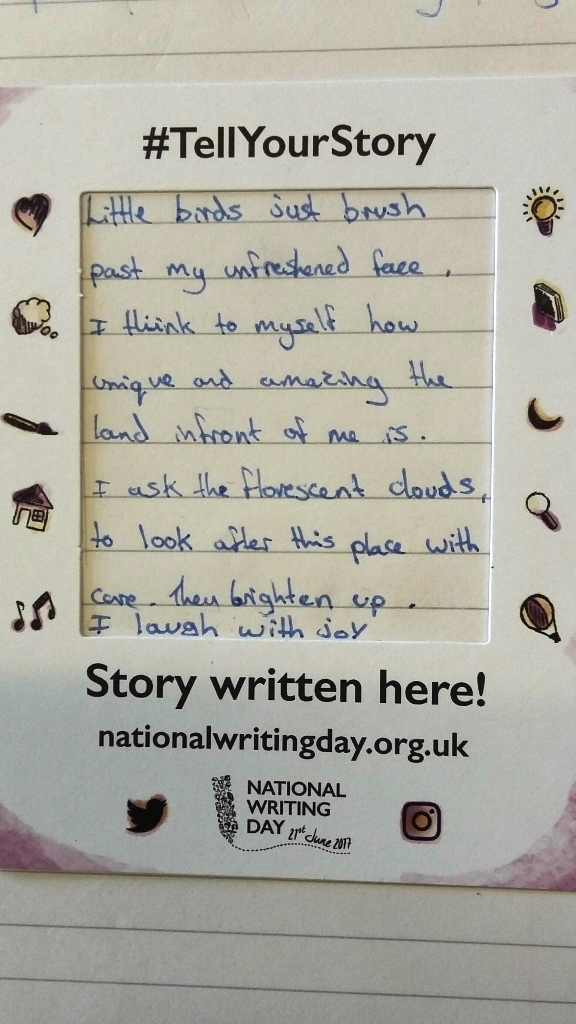 #TellYourStory
Little birds just brush
past my unfreshened face.
I thiink to myself how
unique and amazing the
land infront of me is.
I ask the florescent clouds,
to look after this place with
care. They brighten up.
I laugh with joy
Story written here!
nationalwritingday.org.uk
NATIONAL
WRITING
DAY 21st June 2017